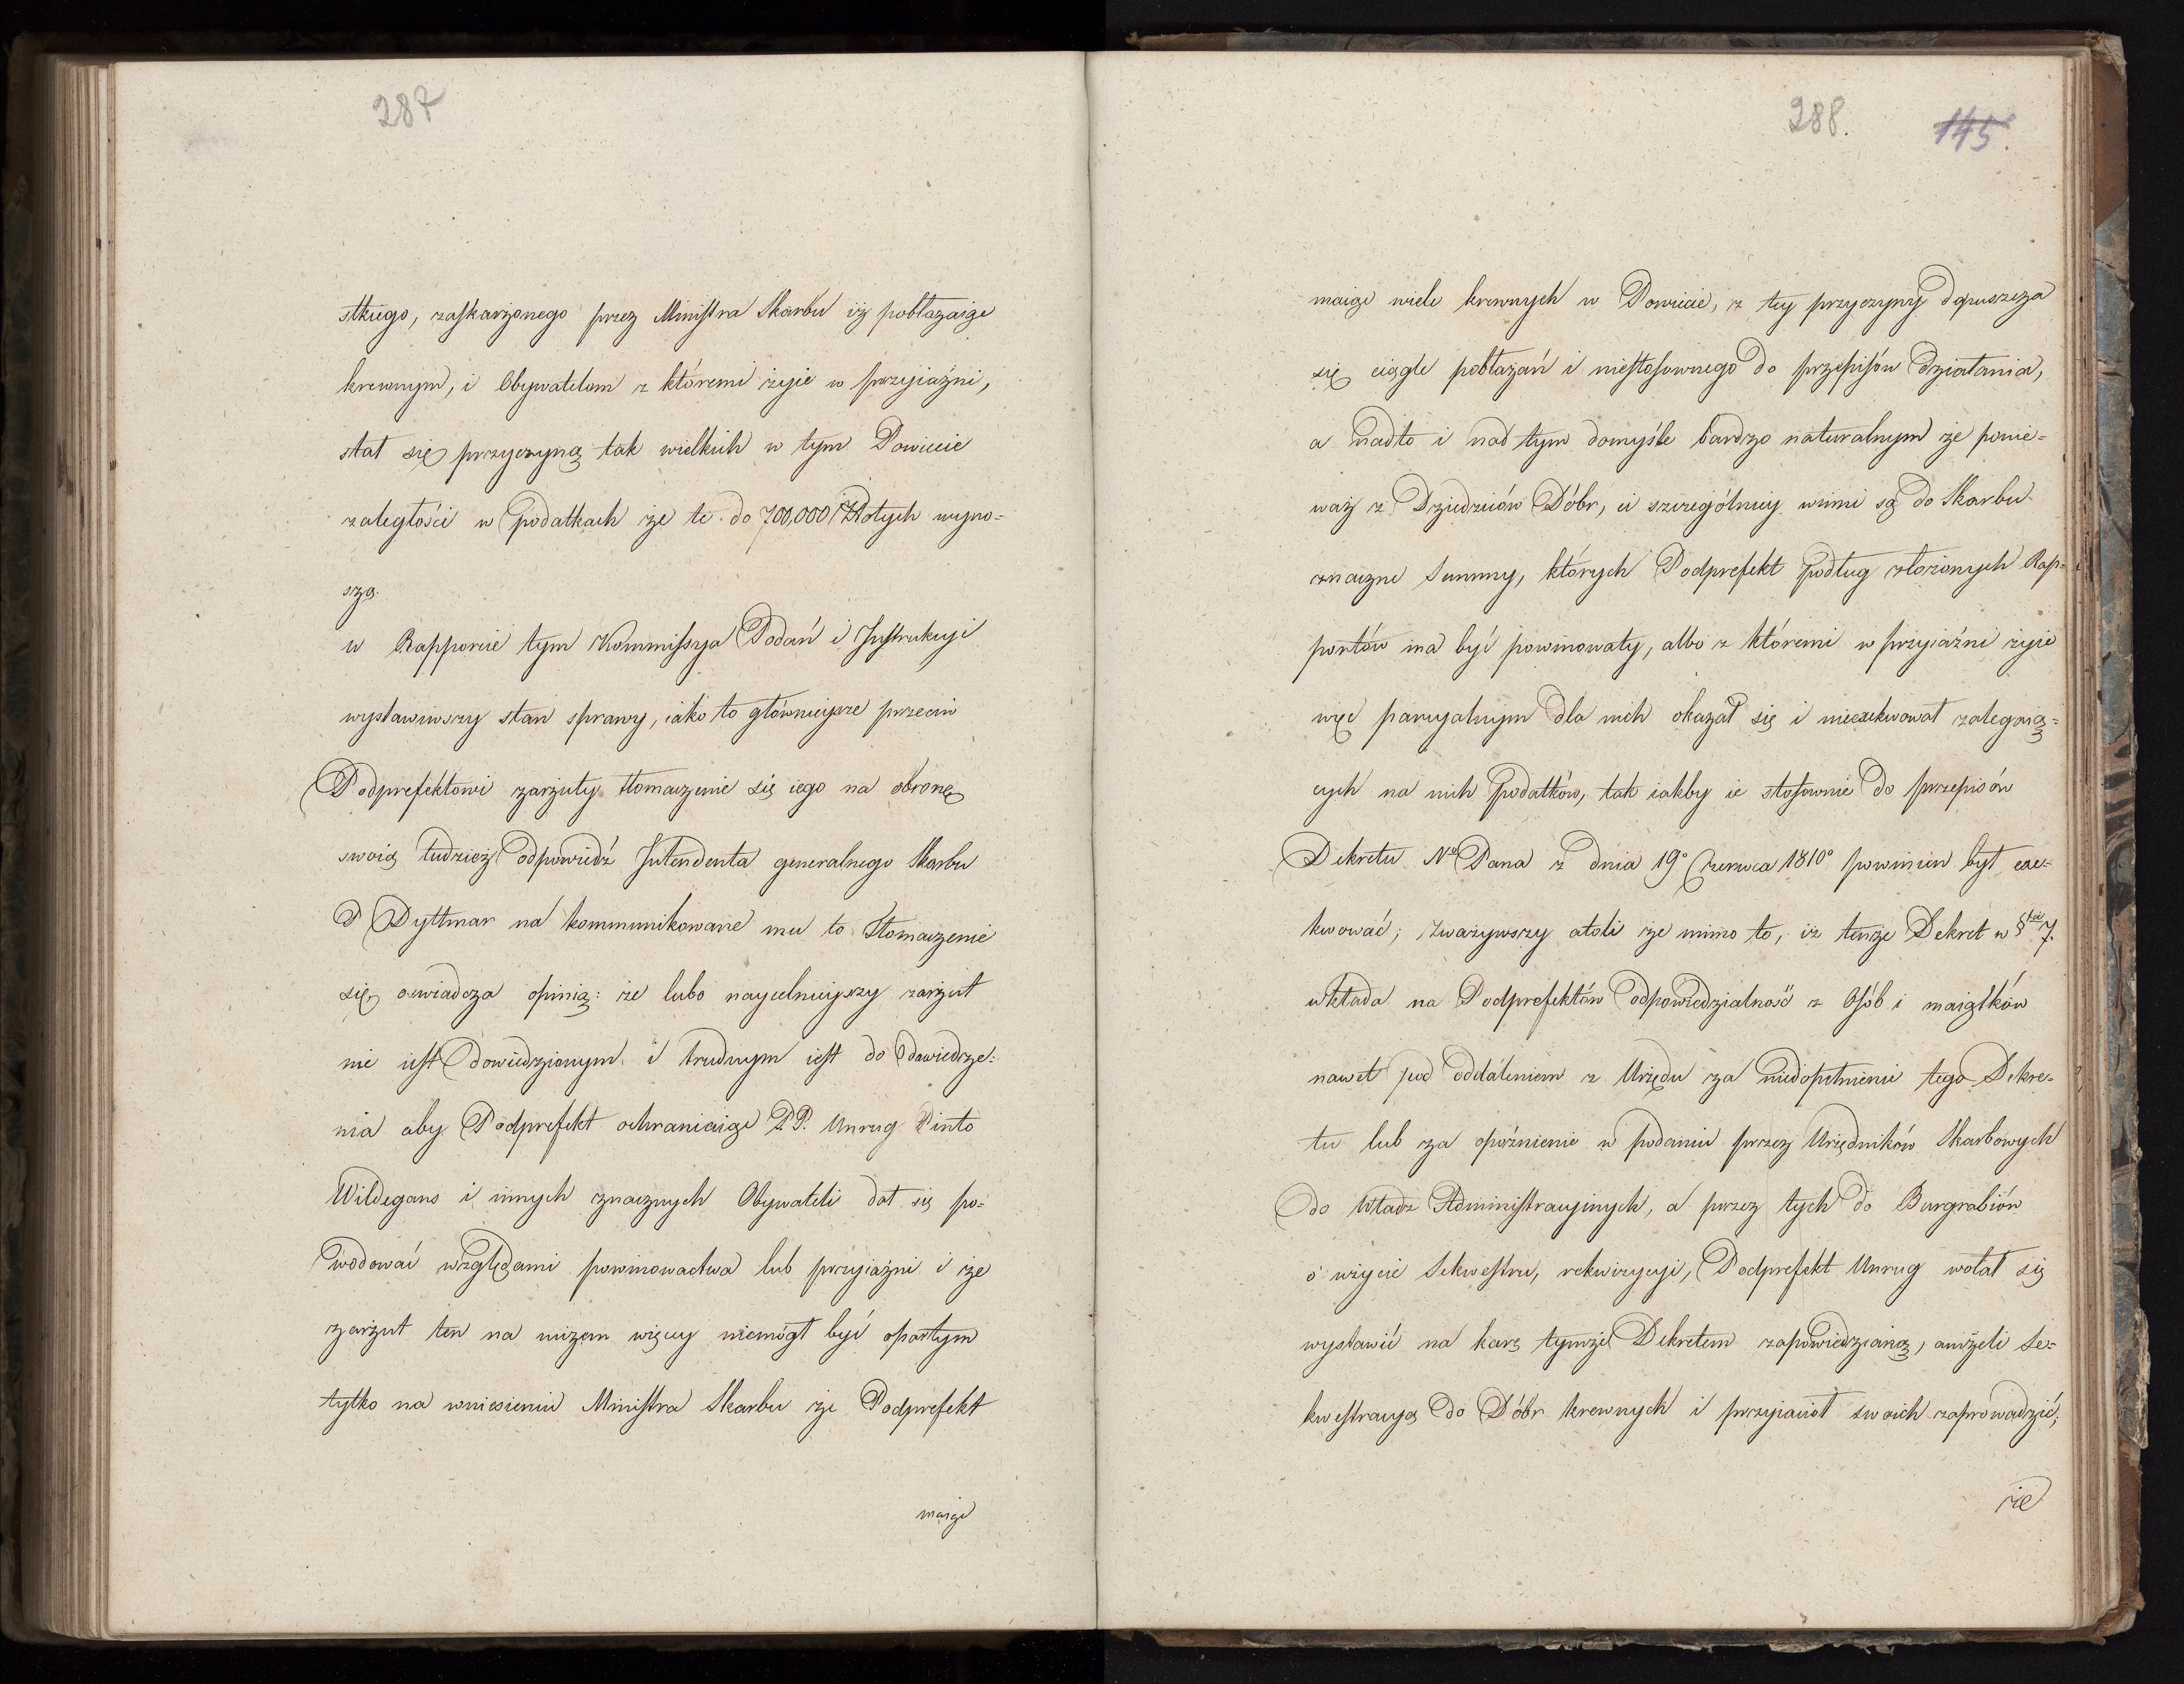 287
stkiego, zaskarżonego przez Ministra Skarbu iż pobłażaiąc
krewnym, i Obywatelom z któremi żyie w przyiaźni,
stał się przyczyną tak wielkich w tym Powiecie
zaległości w podatkach że te do 700,000 Złotych wyno=
szą.
w Rapporcie tym Kommissya Podań i Instrukcyi
wystawiwszy stan sprawy, iako to głównieysze przeciw
Podprefektowi zarzuty tłomaczenie się iego na obronę
swoią tudzież odpowiedź Intendenta generalnego Skarbu
P Dyttmar na kommunikowane mu to tłomaczenie
się, oswiadcza opinią: że lubo naycelnieyszy zarzut
nie iest dowiedzionym i trudnym iest do dowiedze=
nia aby Podprefekt ochraniaiąc P.P. Unrug Pinto
Wildegans i innych znacznych Obywateli dał się po=
wodować względami powinowactwa lub przyiaźni i że
zarzut ten na niczem więcey niemógł być opartym
tylko na wniesieniu Ministra Skarbu że Podprefekt
maiąc
288.
145.
maiąc wiele krewnych w Powiecie, z tey przyczyny dopuszcza
się ciągle pobłażań i niestosownego do przepisów działania,
a nadto i nad tym domyśle bardzo naturalnym że ponie=
waż z Dziedziców Dóbr, ci szczególniey winni są do Skarbu
znaczne Summy, których Podprefekt podług złożonych Rap=
portów ma być powinowaty, albo z któremi w przyiaźni żyie
więc parcyalnym dla nich okazał się i nieexekwował zalegaią=
cych na nich podatków, tak iakby ie stosownie do przepisów
Dekretu N° Pana z dnia 19° Czerwca 1810° powinien był exe=
kwować; zważywszy atoli że mimo to, iż tenże Dekret w § 7.
wkłada na Podprefektów odpowiedzialność z Osób i maiątków
nawet pod oddaleniem z Urzędu za niedopełnienie tego Dekre=
tu lub za opóźnienie w podaniu przez Urzędników Skarbowych
do Władz Administracyinych, a przez tych do Burgrabiów
o wzięcie Sekwestru, rekwizycyi, Podprefekt Unrug wolał się
wystawić na karę tymże Dekretem zapowiedzianą, aniżeli Se=
kwestracyą do Dóbr krewnych i przyiaciół swoich zaprowadzić;
że